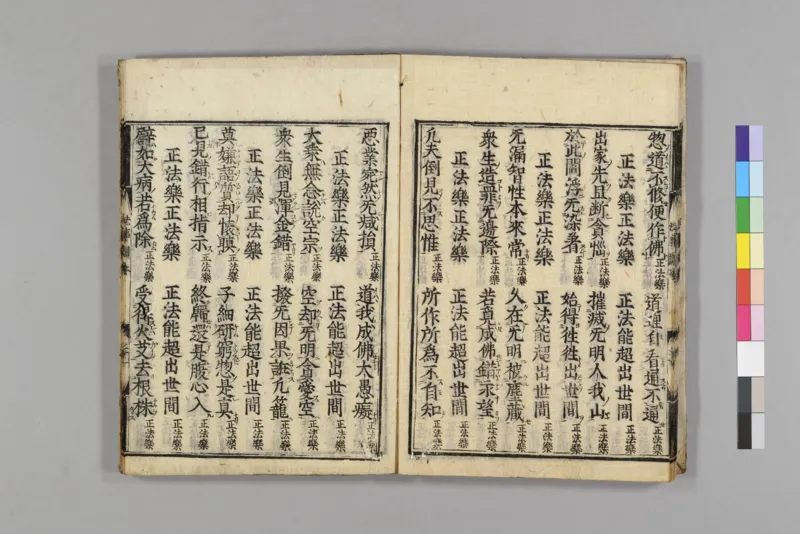 惣道不修便作佛正法樂 道逕自看通不通正法樂
正法樂正法樂 正法能超出世間正法樂
出家先且斷貪 摧滅无明人我山正法樂
於此間 无染著正法樂 始得往牲出世間正法樂
正法樂正法樂 正法能超出世間正法樂
无漏智性本來常 久在无明被塵藏正法樂
衆生造罪无邊際正法樂 若真成佛 求望正法樂
正法樂正法樂 正法能超出世間正法樂
凡夫倒見不思惟 所作所為不自知正法樂
惡業宛然无 損正法樂 道我成佛大愚癡正法樂
正法樂正法樂 正法能超出世間正法樂
大乘無念說空宗正法樂 空却无明貪愛空正法樂
衆生倒見渾金錯正法樂 撥无因果誑凡籠正法樂
正法樂正法樂 正法能超出世間正法樂
莫嫌語 却懷瞋正法樂 子細研窮惣是真正法樂
已見錯行相指示正法樂 終歸還是腹心人正法樂
正法樂正法樂 正法能超出世間正法樂
譬如大病若為除正法樂 受我火艾去根株正法樂